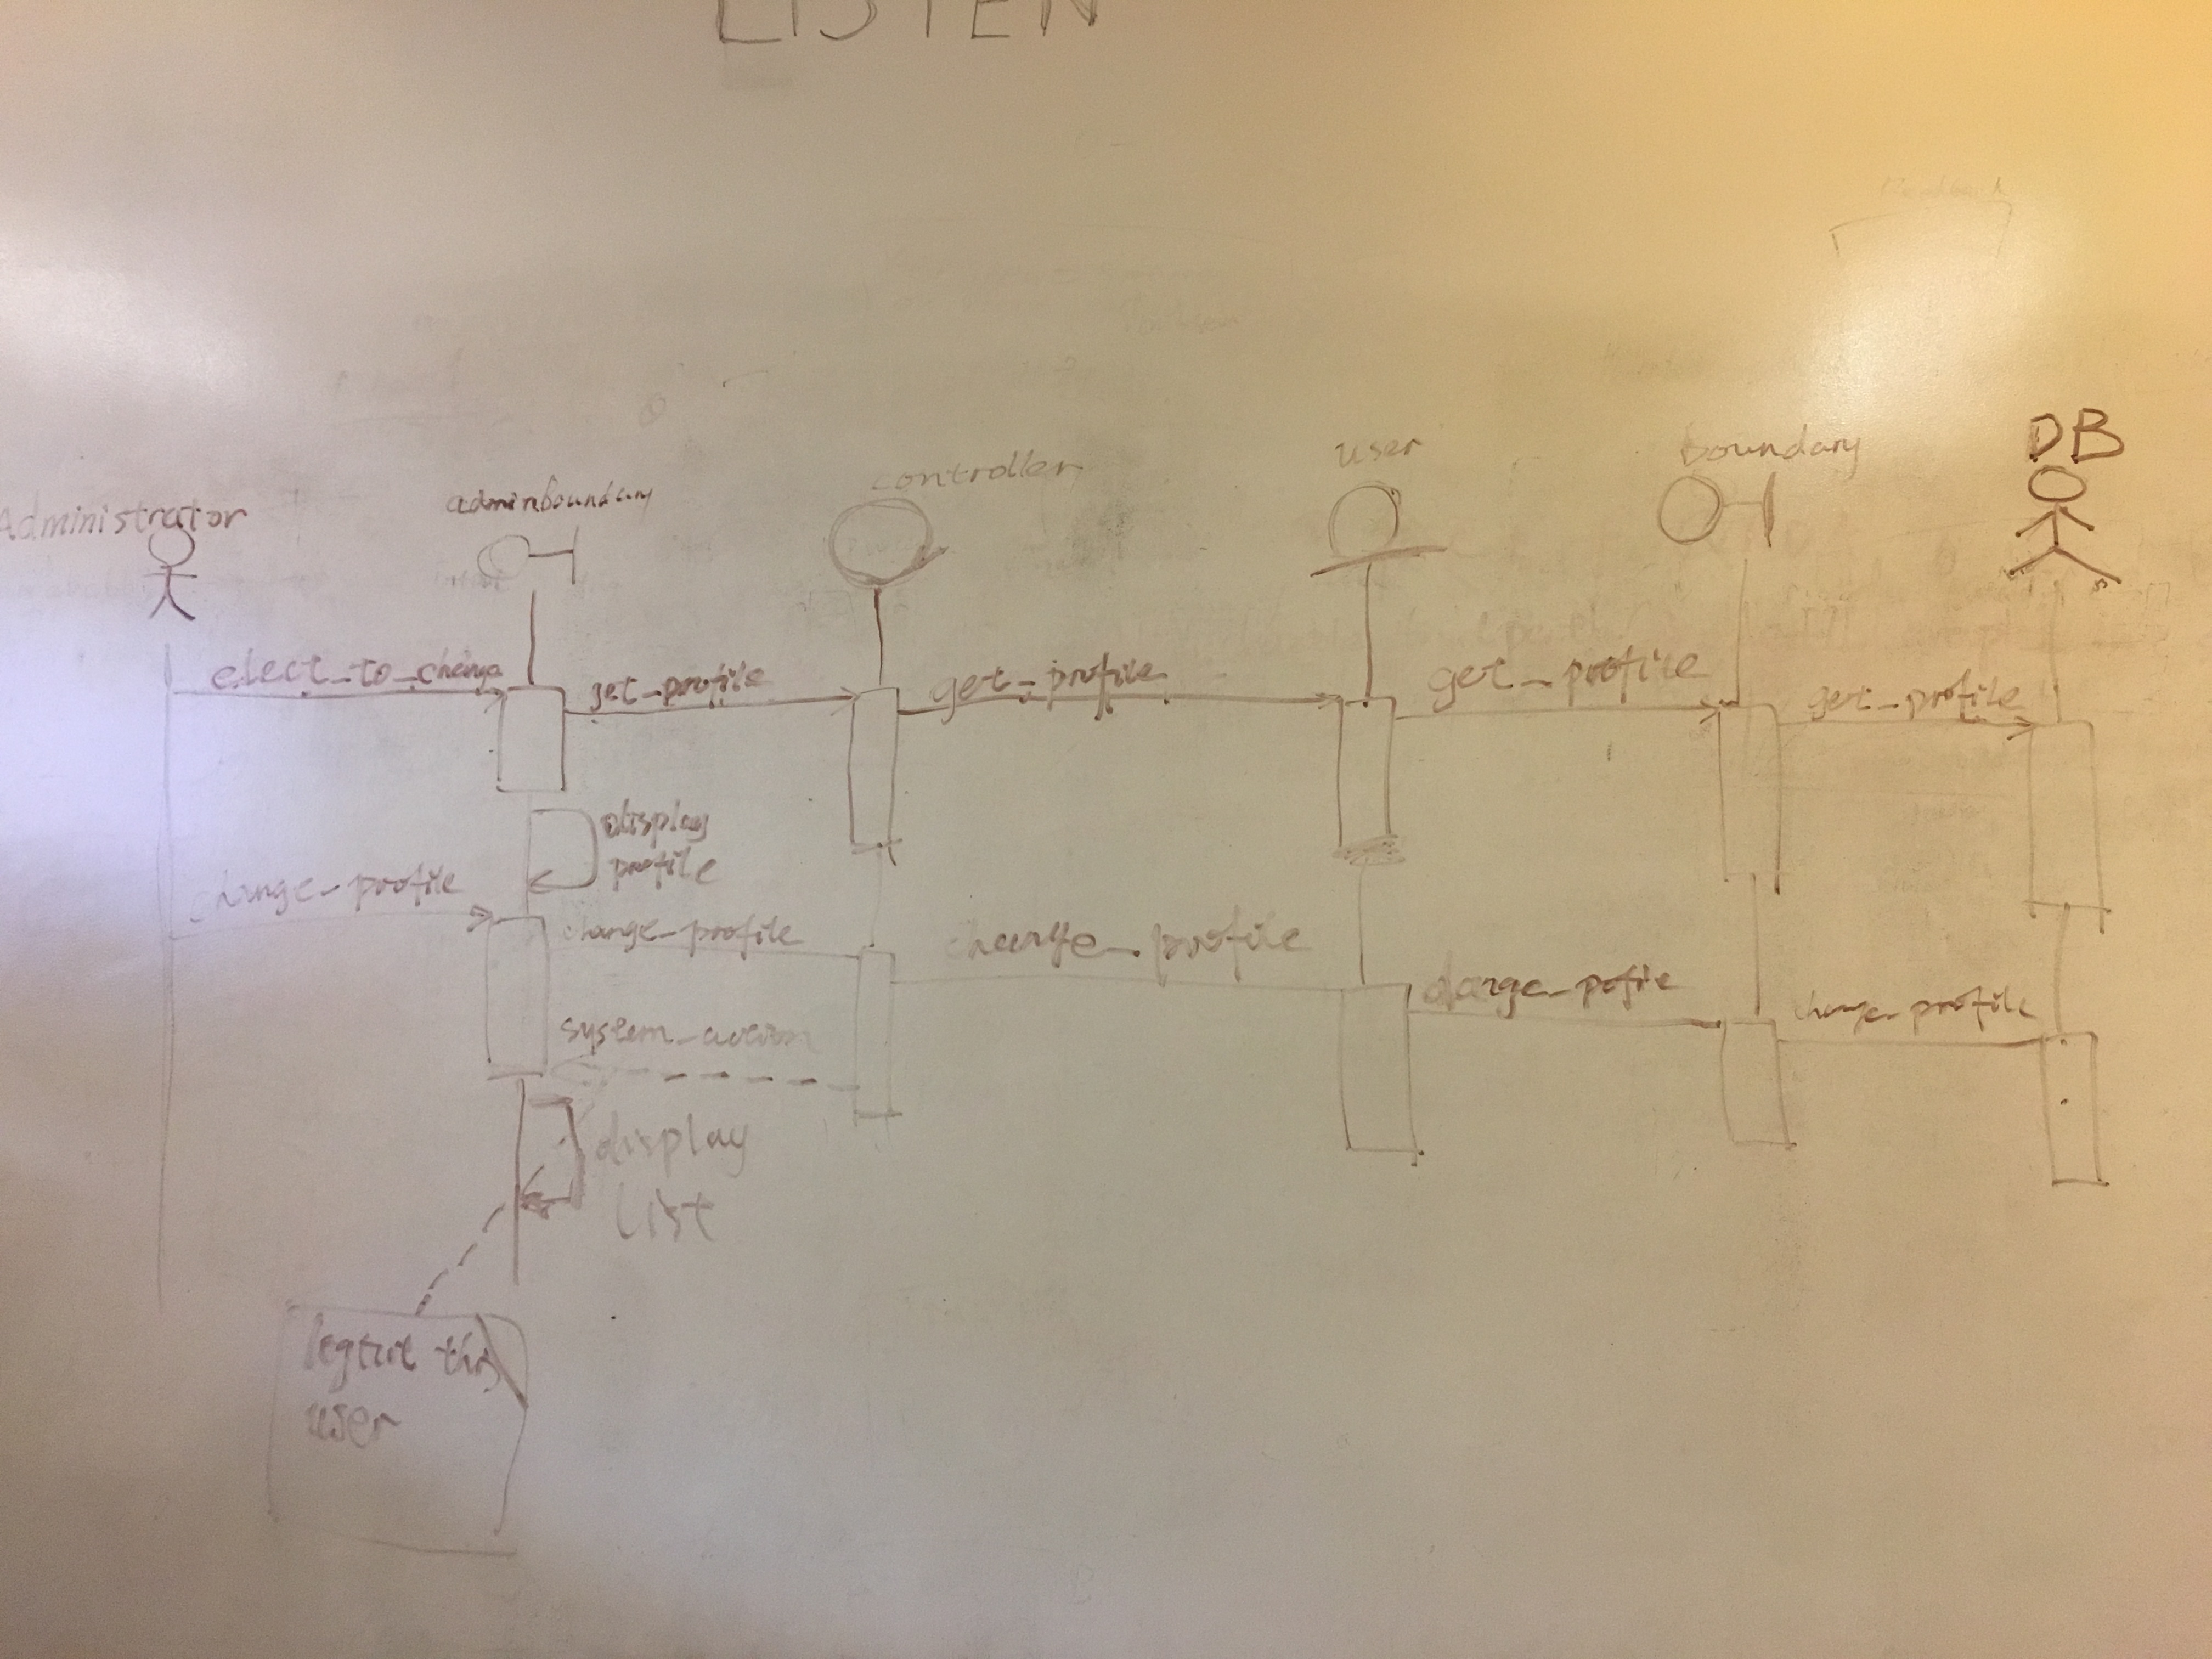 LISTEN
DB
user
boundary
controller
adminboundary
Administrator
elect_to_change
get_profile
get_profile
get_profile
get_profile
display
profile
change_profile
change_profile
change_profile
change_pofile
change_profile
system_action
display
list
this
user